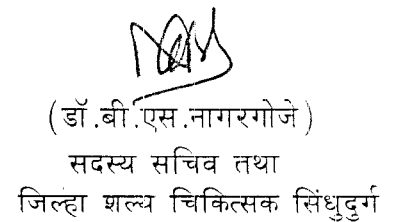 (डॉ.बी.एस.नागरगोजे)
सदस्य सचिव तथा
जिल्हा शल्य चिकित्सक सिंधुदुर्ग